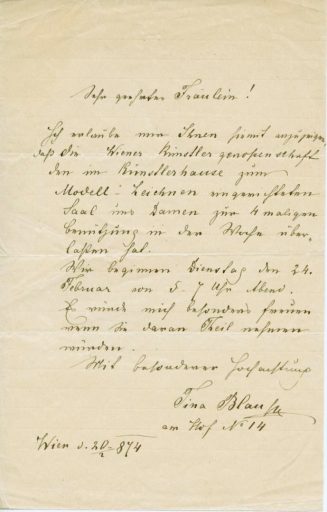 Sehr geehrtes Fräulein!
Ich erlaube mir Ihnen hiemit anzuzeigen,
daß die Wiener Künstlergenossenschaft
den im Künstlerhause zum
Modell-Zeichnen eingerichteten
Saal uns Damen zur 4 maligen
Benützung in der Woche über-
laßen hat.
Wir beginnen Dienstag den 24.
Februar von 5-7 Uhr Abend.
Es würde mich besonders freuen
wenn Sie daran Theil nehmen
würden.
Mit besonderer Hochachtung
Tina Blau
am Hof No 14
Wien d. 20/2 874